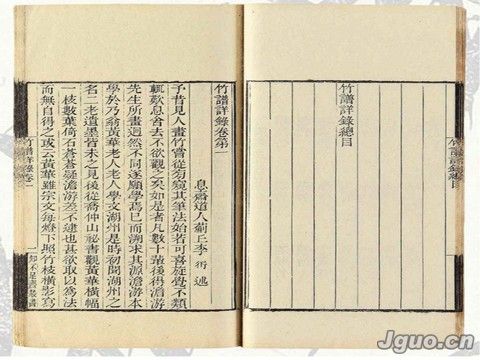 竹譜詳錄總目
竹譜詳錄總目
竹譜詳錄卷第一
息齋道人薊丘李衎述
予昔見人畫竹嘗從旁窺其筆法始若可喜旋覺不類
輒歎息舍去不欲觀之矣如是者凡數十輩後得澹游
先生所畫迥然不同遂願學焉已而溯求其源澹游本
學於乃翁黃華老人老人學文湖州是時初聞湖州之
名二老遺墨皆未之見後從喬仲山祕書觀黃華橫幅
一枝數葉倚石蒼蒼疑澹游差不逮也其欲取以爲法
而無自得之或云黃華雖宗文每燈下照竹枝模影寫
竹譜詳錄卷一
一
知不足齋叢書
Jguo.cn